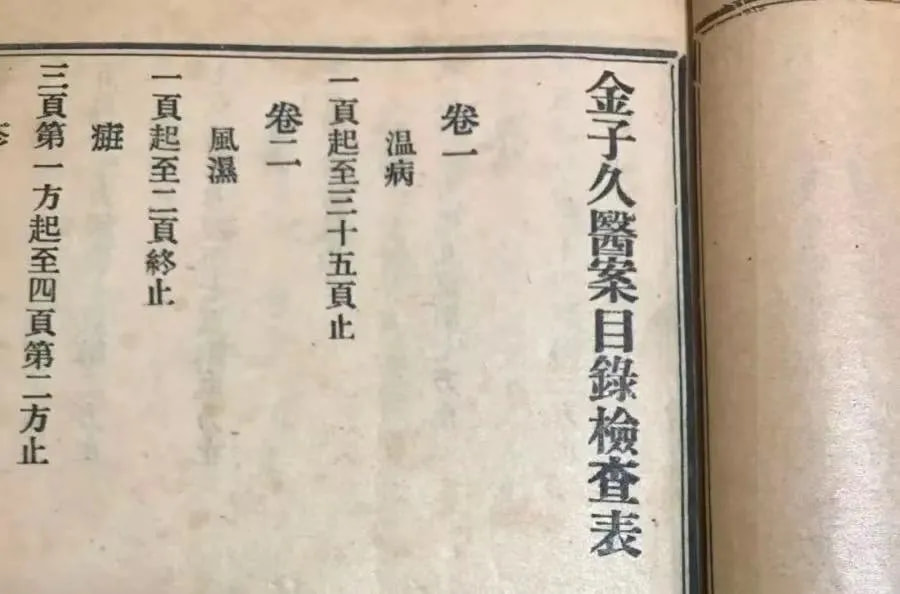 金子久醫案目錄檢查表
卷一
温病
一頁起至三十五頁止
卷二
風濕
一頁起至二頁終止
三頁第一方起至四頁第二方止